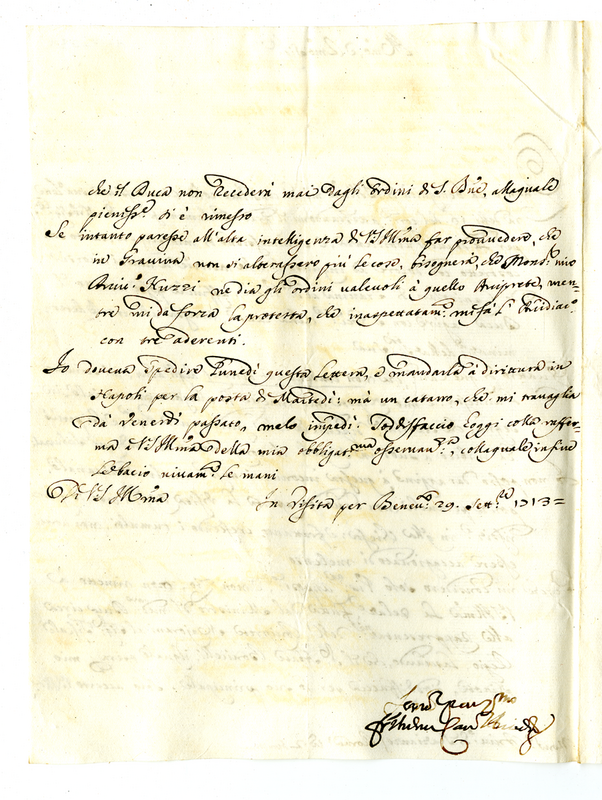 che il Duca non recederà mai dagli ordini di S. B.ne, alla quale
pieniss.e si è rimesso
Se intanto paresse all'alta intelligenza di VS Ill̃ma far provvedere, che
in Gravina non si alterassero più le cose, bisognerà, che Mons.r mio
Arciv.o Ruzzi ne dia gli ordini valevoli à quello Arciprete, men-
tre mi dà forza la protesta, che inaspettatam.e mi fà l'Arcidiac.o
con tre aderenti.
Io doveva spedire Lunedì questa lettera, e mandarla à dirittura in
Napoli per la posta di Martedì: mà un catarro, che mi travaglia
dà Venerdì passato, melo impedì. Sodisfaccio hoggi colla raffer-
ma à VS Ill̃ma della mia obbligat.ma osservan.za, colla quale in fine
le bacio vivam.e le mani
Di VS Ill̃ma In Visita per Benev.o 29. Sett.re 1713=